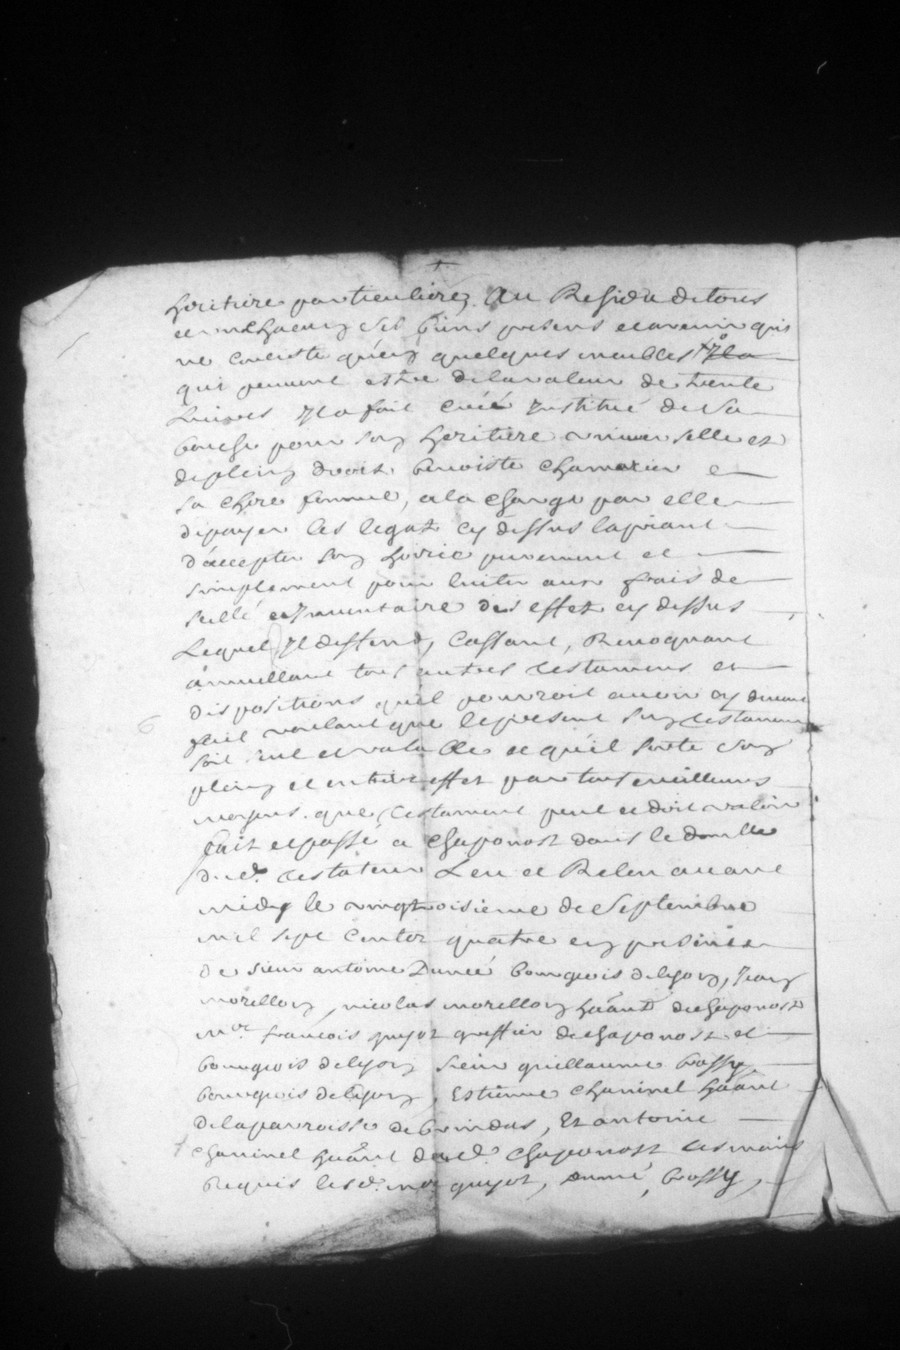 heritiere particuliere, Au Residu de tous
et un chacuns ses biens presens et avenir quis
ne consiste qu'en quelques meubles
qui peuvent estre de la valeur de trente
Livres Il a fait creé Institué de sa
bouche pour son heritiere universelle et
de plein droit benoiste chamarier
sa chere femme, a la charge par elle
de payer les legatz cy dessus la priant
d'accepter son hoirie purement et
simplement pour eviter aux frais de
scellé et Inventaire des effetz cy dessus
Lequel Il deffend, Cassant, Revoquant
annullant tous autres testamens et
dispositions qu'il pourroit avoir cy devant
fait voulant que le present son testament
soit seul et valable et qu'il sorte son
plein et entier effet par tous meilleurs
moyens que testament peut et doit valoir
fait et passé a chaponost dans le domlle
dud. testateur Leu et Releu avant
midy le vingtroisieme de Septembre
mil sept centz quatre en presence
de sieur antoine Dumé bourgeois de lyon, Jean
morellon, nicolas morellon hãant de chaponost
me francois guyot greffier de chaponost et
bourgeois de lyon sieur guillaume bossy
bourgeois de lyon, Estienne chaninel hãant
de la parroisse de brindas, Et antoine
chaninel hãant dud. chaponost tesmoins
Requis les d. me guyot, Dumé, bossy,